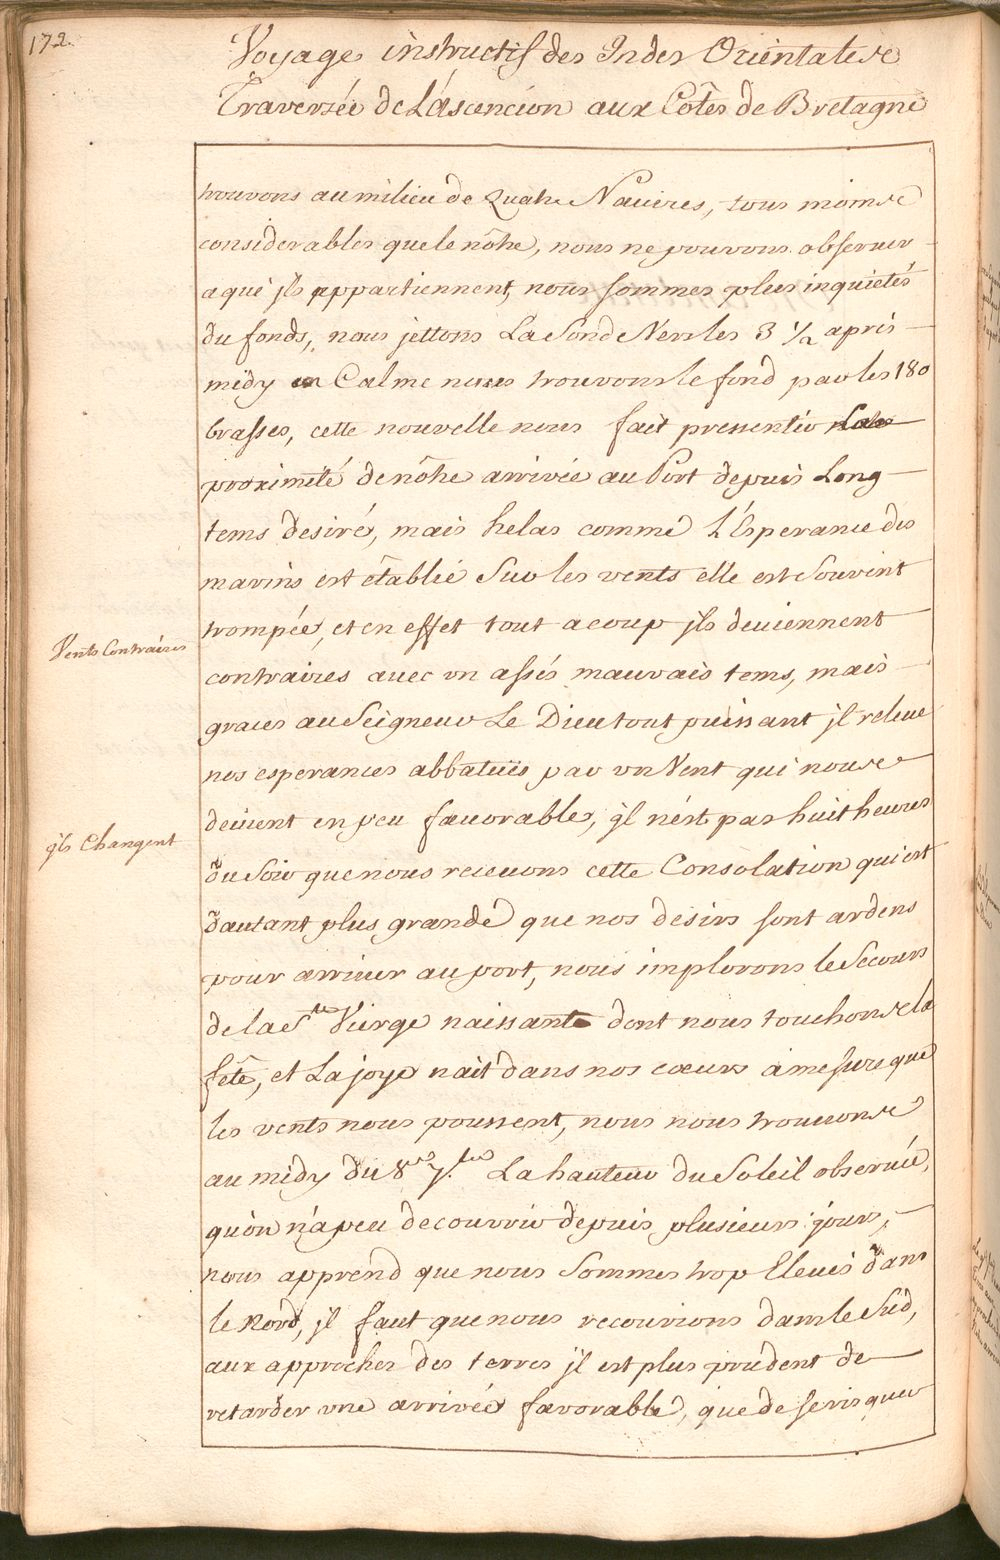 172.
Voyage instructif des Indes Orientales
Traversée de L'ascencion aux Côtes de Bretagne
trouvons au milieu de Quatre Nauires, tous moins
considerables que le nôtre, nous ne pouvons obseruer
a qui jls appartiennent, nous sommes plus inquietés
du fonds, nous jettons La Sonde Vers les 3 ½ apris
midy en Calme nous trouvons le fond par les 180
brasses, cette nouvelle nous fait pressentir La
proximité de nôtre arrivée au Port depuis Long
tems desiré, mais helas comme L'Esperance des
marins est êtablie Sur les vents elle est Souvent
trompée, et en effet tout a coup jls deuiennent
Vents Contraires
contraires auec vn assés mauvais tems, mais
graces au Seigneur Le Dieu tout puissant jl releue
nos esperances abbatuës par vn Vent qui nous
deuient en peu fauorable, jl n'est pas huit heures
jls Changent
du Soir que nous receuons cette Consolation qui est
d'autant plus grande que nos desirs sont ardens
pour arriuer au port, nous implorons le Secours
de la Ste Vierge naissante dont nous touchons la
fête, et La joye nait dans nos cœurs à mesure que
les vents nous poussent, nous nous trouuons
au midy du 8es 7.bre La hauteur du Soleil obseruée,
qu'on n'a peu decouvrir depuis plusieurs jours,
nous apprend que nous Sommes trop Eleués dans
le Nord, jl faut que nous recourions dans le Sud,
aux approches des terres jl est plus prudent de
retarder vne arrivée favorable, que de se risquer